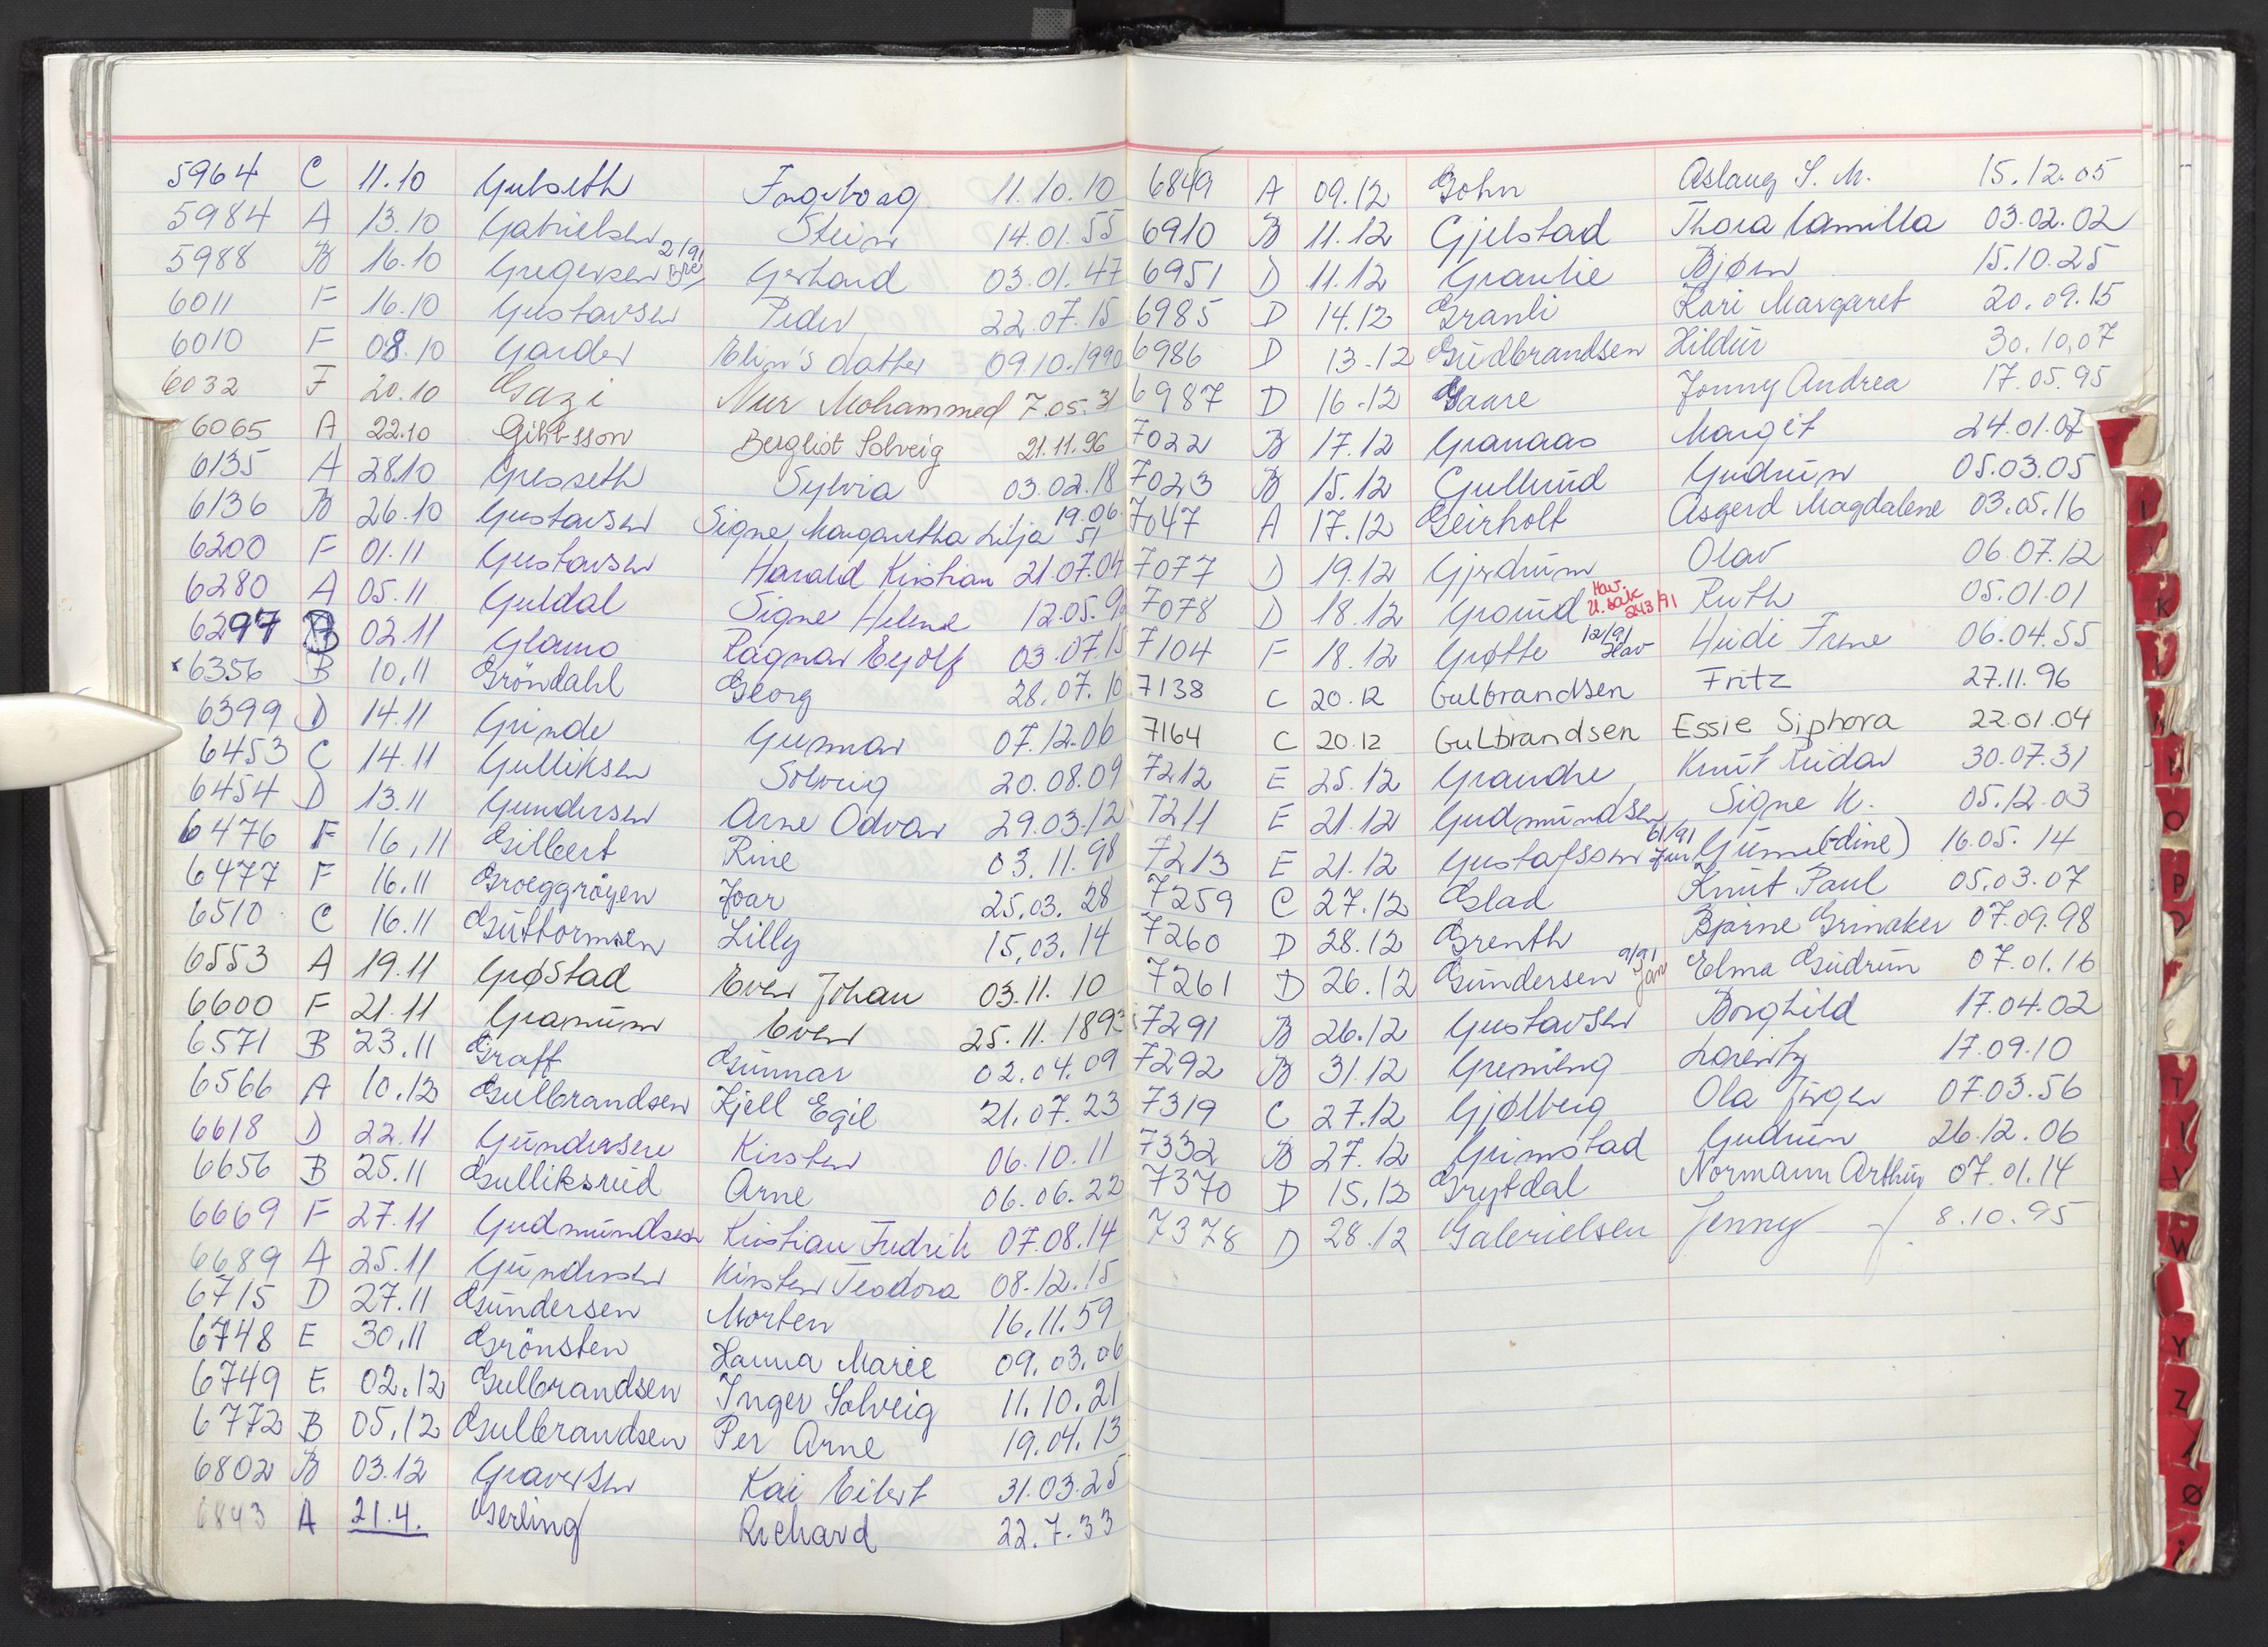 5964 C 11.10 Gulseth Ingeborg 11.10.10
5984 A 13.10 Gabrielsen Stein 14.01.55
5988 B 16.10 Gregersen 2/91 Bre Gerhard 03.01.47
6011 F 16.10 Gustavsen Peder 22.07.15
6010 F 08.10 Garder Elin's datter 09.10.1990
6032 F 20.10 Gazi Nur Mohammed 7.05.31
6065 A 22.10 Bergliot Solveig 21.11.96
6135 A 28.10 Gresseth Sylvia 03.02.18
6136 B 26.10 Gustavsen Signe Margaretha Lilja 19.06.51
6200 F 01.11 Gustavsen Harald Kristian 21.07.04
6280 A 05.11 Guldal Signe Helene 12.05.9
6297 B 02.11 Glamo Ragnar Eyolf 03.07.15
x 6356 B 10,11 Gröndahl Georg 28,07.10
6399 D 14.11 Grinde Gunnar 07.12.06
6453 C 14.11 Gulliksen Solveig 20.08.09
6454 D 13.11 Gundersen Arne Odvar 29.03.12
6476 F 16,11 Gilbert Rine 03.11.98
6477 F 16.11 Groeggröyen Joar 25,03.28
6510 C 16.11 Guttormsen Lilly 15,03.14
6553 A 19.11 Grøstad Even Johan 03.11.10
6600 F 21.11 Granum Even 25.11.1893
6571 B 23.11 Graff Gunnar 02.04.09
6566 A 10.12 Gulbrandsen Kjell Egil 21.07.23
6618 D 22.11 Gundersen Kirsten 06.10.11
6656 B 25.11 Gulliksrud Arne 06.06.22
6669 F 27.11 Gudmundsen Kristian Fredrik 07.08.14
6689 A 25.11 Gundersen Kirsten Teodora 08.12.15
6715 D 27.11 Gundersen Morten 16.11.59
6748 E 30,11 Grönsten Hanna Marie 09.03.06
6749 E 02.12 Gulbrandsen Inger Solveig 11.10.21
6772 B 05,12 Gulbrandsen Per Arne 19.04.13
6802 B 03.12 Graversen Kai Eibert 31.03.25
6843 A 21.4. Gerling Richard 22.7.33
6849 A 09.12 Gohn Aslaug S. M. 15.12.05
6910 B 11.12 Gjelstad Thora Camilla 03.02.02
6951 D 11.12 Granlie Bjørn 15.10.25
6985 D 14.12 Granli Kari Margaret 20.09.15
6986 D 13.12 Gudbrandsen Hildur 30.10.07
6987 D 16.12 Gaare Jonny Andrea 17.05.95
7022 B 17.12 Granaas Margit 24.01.07
7023 B 15.12 Gullund Gudrun 05.03.05
7047 A 17.12 Geirholt Asgerd Magdalene 03.05.16
7077 D 19.12 Gjerdrum Olav 06.07.12
7078 D 18.12 Grorud Hav. U.sak 243/91 Ruth 05.01.01
7104 F 18.12 Grøtte 12/91 Hav Heidi Irene 06.04.55
7138 C 20.12 Gulbrandsen Fritz 27.11.96
7164 C 20.12 Gulbrandsen Essie Siphora 22.01.04
7212 E 25.12 Grandre Knut Reidar 30.07.31
7211 E 21.12 Gudmundsen Signe K. 05.12.03
7213 E 21.12 Gustafsson 61/91 Gunne(dine) 16.05.14
7259 C 27.12 Glad Knut Paul 05.03.07
7260 D 28.12 Grenth Bjarne Grinaker 07.09.98
7261 D 26.12 Gundersen 9/91 Jan Elma Gudrun 07.01.16
7291 B 26.12 Gustavsen Borghild 17.04.02
7292 B 31.12 Grening Lorentz 17.09.10
7319 C 27.12 Gjølberg Ola Jørgen 07.03.56
7332 B 27.12 Grimstad Gudrun 26.12.06
7370 D 15.12 Grytdal Normann Arthur 07.01.14
7378 D 28.12 Gabrielsen Jenny 8.10.95
I
K
O
P
T
Y
W
Y
Z
Ø